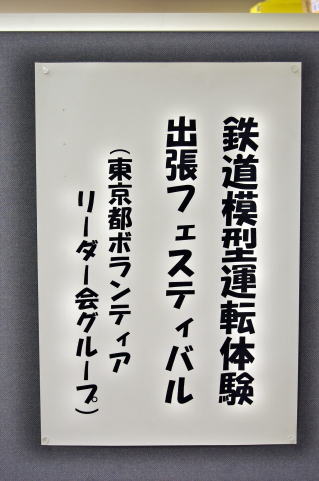 鉄道模型運転体験
出張フェスティバル
（東京都ボランティア
リーダー会グループ）